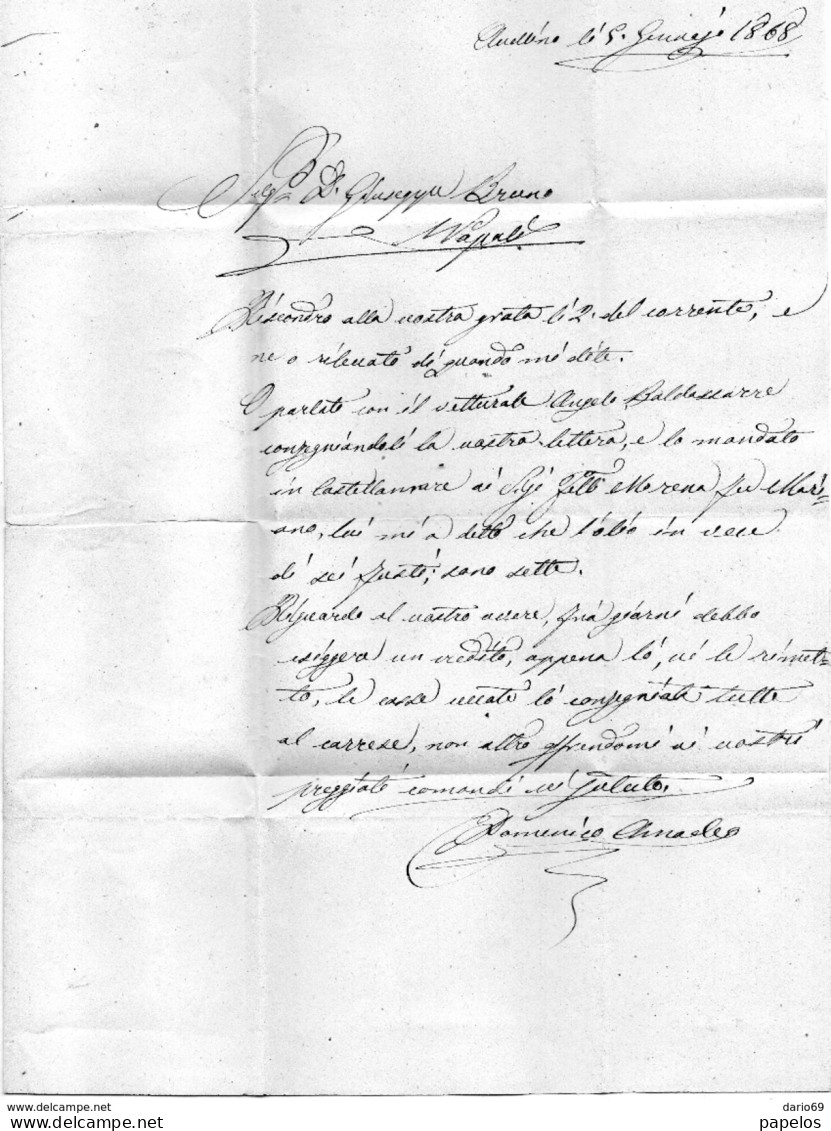 Avellino li 5. Gennajo 1868
Sigr. D. Giuseppe Bruno
Napoli
Riscondro alla vostra grata li 2. del corrente, e
ne o rilevato di quando mi dite.
O parlato con il vetturale Angelo Baldassarre
consegniandoli la vostra lettera, e lo mandato
in Castellammare ai Morena fu Mari=
ano, lui mi a detto che l'olio in vece
di sei fusti, sono sette.
Riguardo al vostro avere, frà giorni debbo
esiggere un credito, appena lò, vi le rimet=
to, le casse lò consegniate tutte
al carrese, non altro offrendomi ai vostri
preggiati comandi vi saluto.
Domenico Amadeo
www.delcampe.net
dario69
papelos